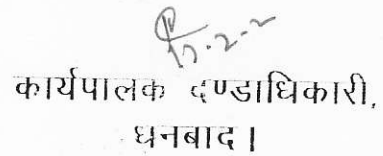 17.2.2
कार्यपालक दण्डाधिकारी,
धनबाद।